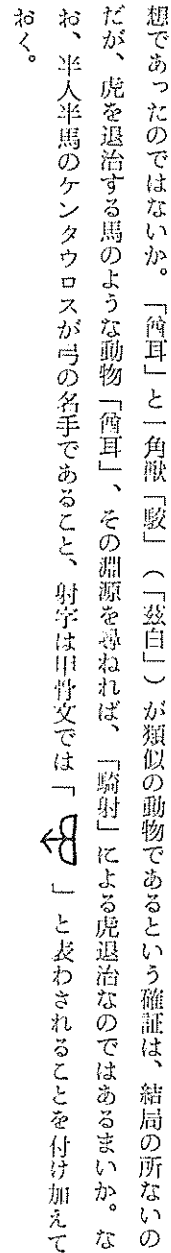 想であったのではないか。「酋耳」と一角獣「駮」(「茲白」)が類似の動物であるという確証は、結局の所ないの
だが、虎を退治する馬のような動物「酋耳」、その淵源を尋ねれば、「騎射」による虎退治なのではあるまいか。な
お、半人半馬のケンタウロスが弓の名手であること、射字は甲骨文では「 」と表わされることを付け加えて
おく。